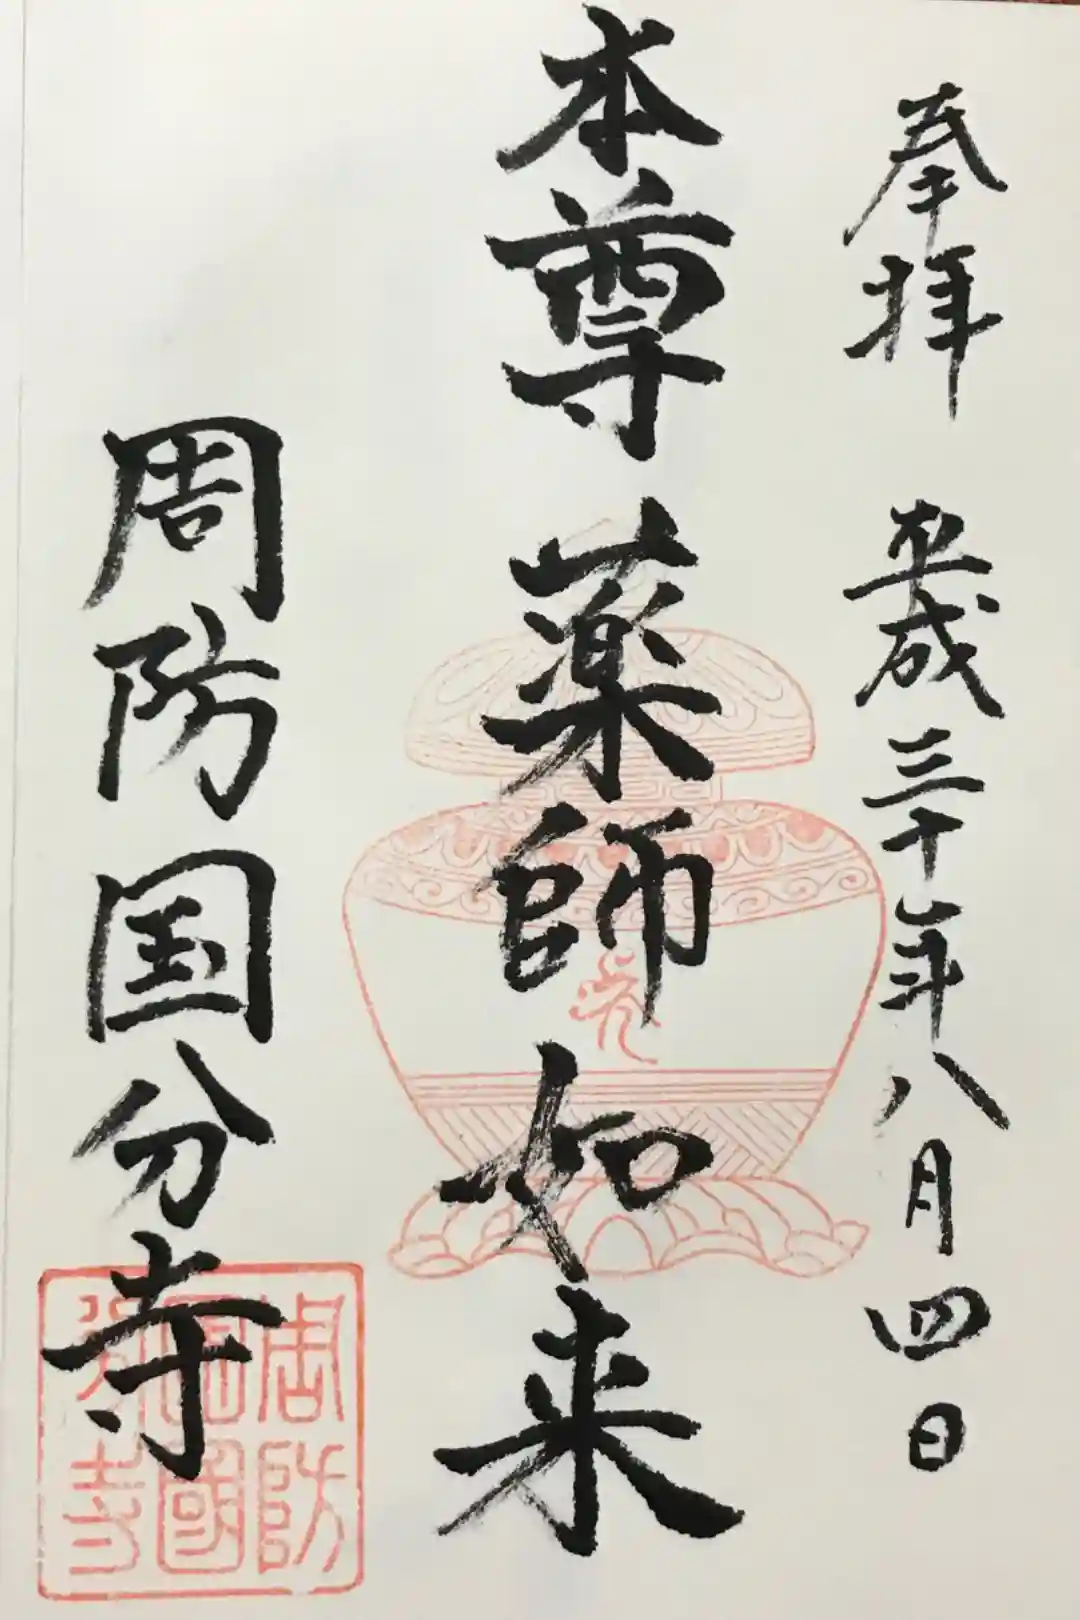 奉拝 平成三十年八月四日
本尊 薬師如来
周防国分寺